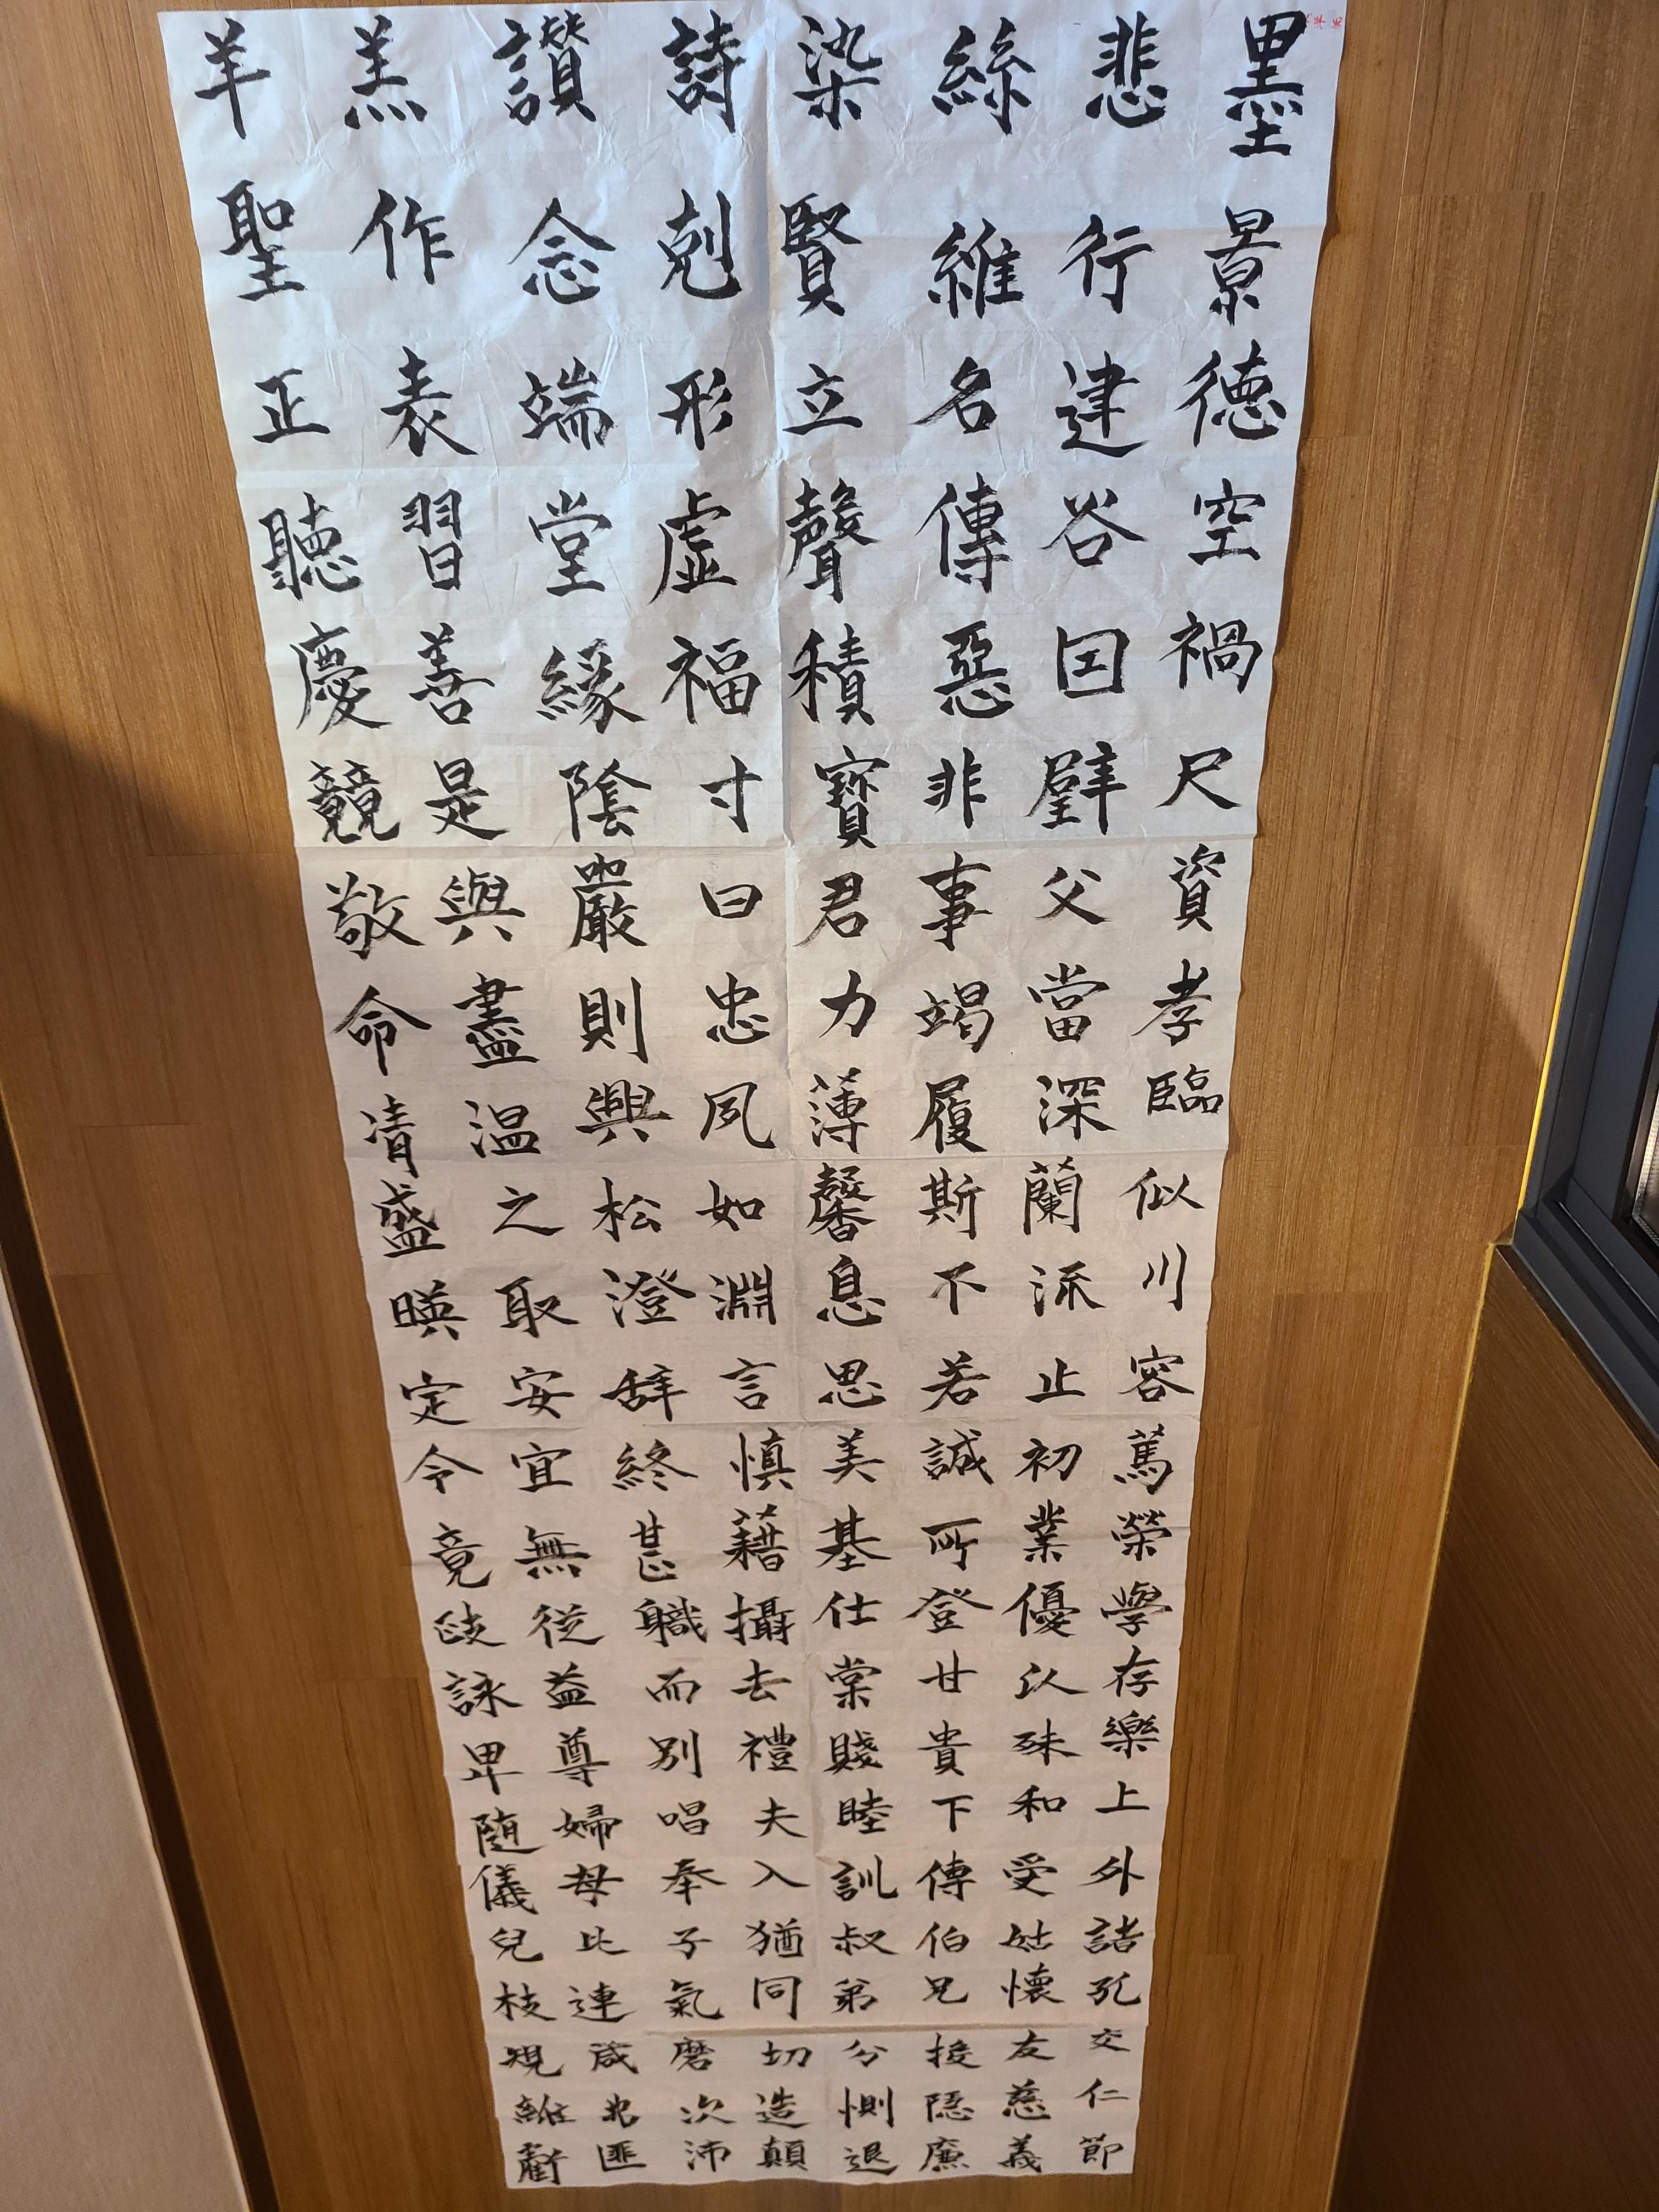 墨悲絲染詩讚羔羊
景行維賢剋念作聖
德建名立形端表正
空谷傳聲虛堂習聽
禍因惡積福緣善慶
尺璧非寶寸陰是競
資父事君曰嚴與敬
孝當竭力忠則盡命
臨深履薄夙興温凊
似蘭斯馨如松之盛
川流不息淵澄取暎
容止若思言辭安定
篤初誠美慎終宜令
榮業所基藉甚無竟
學優登仕攝職從政
存以甘棠去而益詠
樂殊貴賤禮別尊卑
上和下睦夫唱婦随
外受傅訓入奉母儀
諸姑伯叔猶子比兒
孔懷兄弟同氣連枝
交友投分切磨箴規
仁慈隐惻造次弗離
節義廉退顛沛匪虧